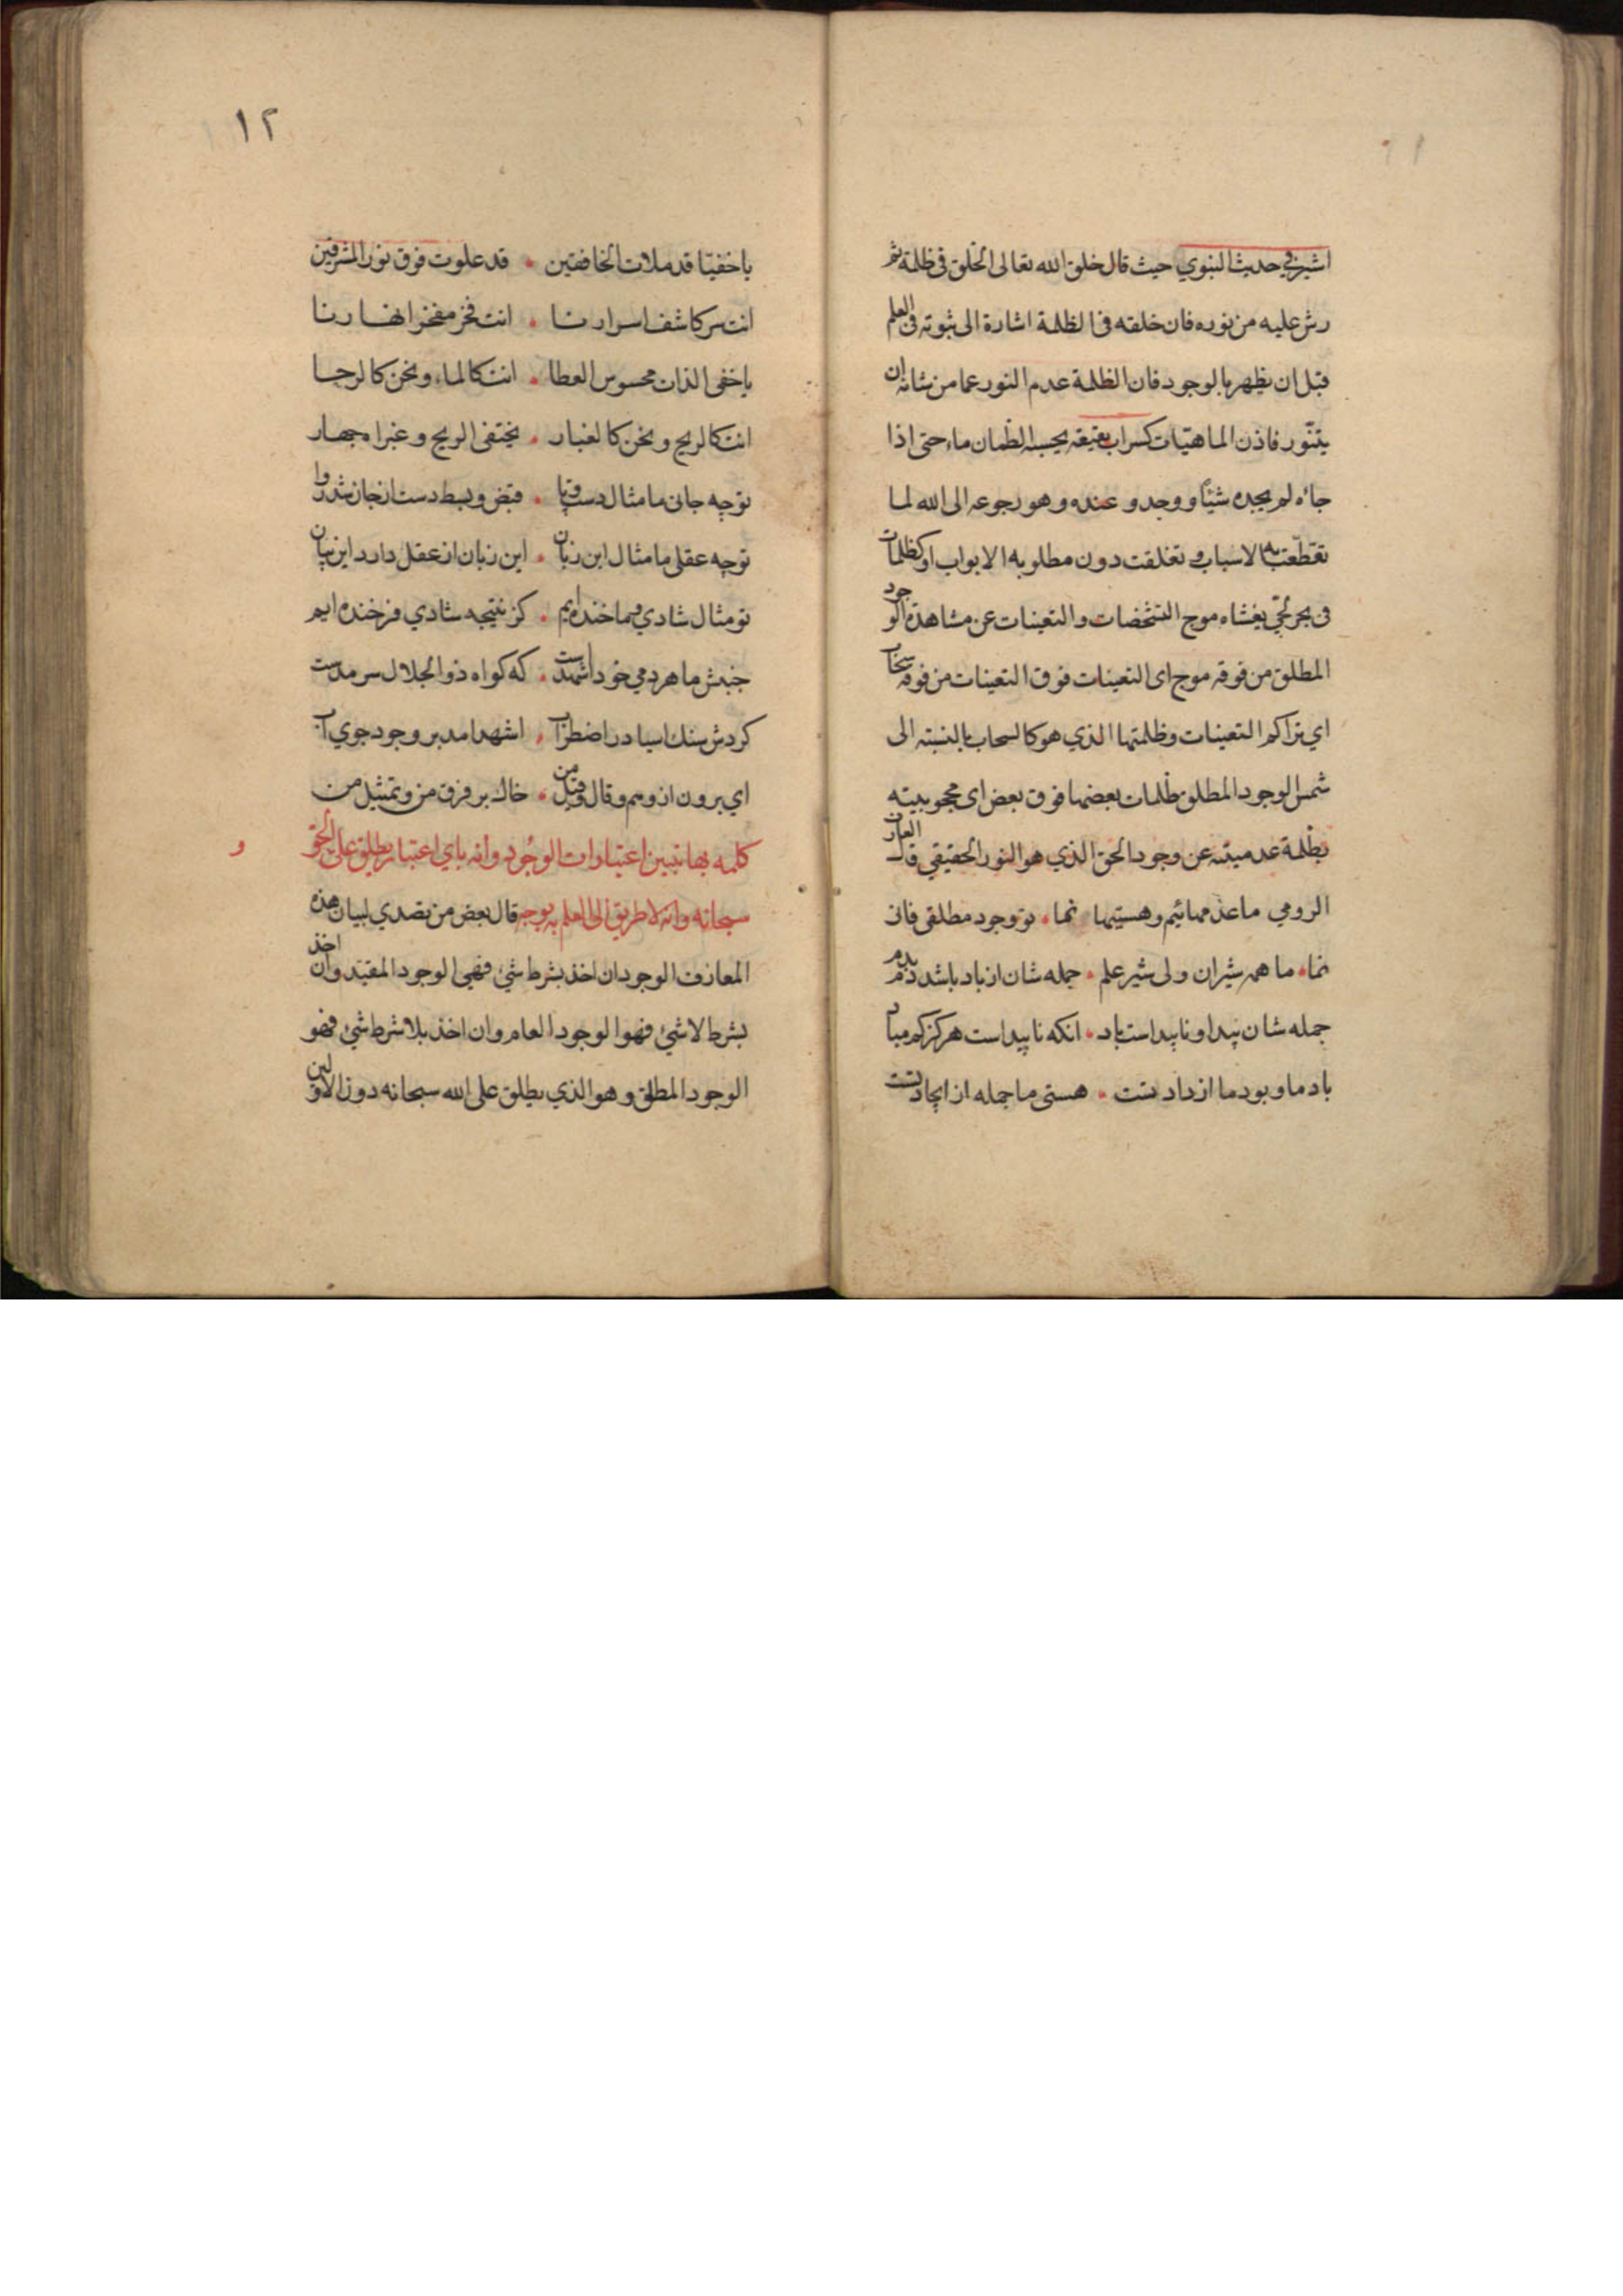 اشير في حديث النبوي حيث قال خلق الله تعالى الخلق في ظلمة ثم
رش عليه من نوره فان خلقه في الظلمة اشارة الى ثبوته في العلم
قبل ان يظهر بالوجود فان الظلمة عدم النور عما من شانه ان
يتنّور فاذن الماهيّات كسراب بقيعة يحسبه الظمان ماء حتى اذا
جاءه لم يجده شيئاً ووجد و عنده وهو رجوعه الى الله لما
تقطّعت به الاسباب و تغلقت دون مطلوبه الابواب او كظلمات
في بحر لجّي يغشاه موج التشخصات والتعينات عن مشاهدة الوجود
المطلق من فوقه موج اى التعينات فوق التعينات من فوقه سحاب
اي تراكم التعينات وظلمتها الذي هو كالسحاب بالنسبته الى
شمس الوجود المطلق ظلمات بعضها فوق بعض اى محجوبيته
بظلمة عدميته عن وجود الحق الذي هو النور الحقيقي قال العارف
الرومي ما عدمهائيم وهستيها نما • تو وجود مطلقى فانى
نما • ما همه شيران ولى شير علم • جمله شان از باد باشد دم بدم
جمله شان پيدا و ناپيداست باد • انكه ناپيداست هركز كم مباد
باد ما و بود ما از داد تست • هستى ما جمله از ايجاد تست
١٢
يا خفيّا قد ملات الخافقين • قد علوت فوق نور المشرقين
انت سر كاشف اسرارنا • انت فجر مفجر انهارنا
يا خفى الذات محسوس العطا • انت كالماء ونحن كالرحا
انت كالريح ونحن كالغبار • يختفى الريح و غبراه جهار
توچه جانى ما مثال دست و پا • قبض و بسط دست از جان شد روا
توچه عقلى ما مثال اين زبان • اين زبان از عقل دارد اين بيان
تو مثال شادي و ما خنده ايم • كز نتيجه شادي فرخنده ايم
جنبش ما هردمي خود اشهدست • كه كواه ذو الجلال سرمدست
كردش سنك اسيا در اضطراب • اشهد امد بر وجود جوي آب
اي برون از وهم و قال و قيل من • خاك بر فرق من و تمثيل من
كلمه بها تبيين اعتبارات الوجود وأنه باي اعتبار يطلق على الحق و
سبحانه وانه لا طريق الى العلم به بوجه قال بعض من تصدي لبيان هذه
المعارف الوجود ان اخذ بشرط شئ فهى الوجود المقيّد وان اخذ
بشرط لا شئ فهو الوجود العام وان اخذ بلا شرط شئ فهو
الوجود المطلق وهو الذي يطلق على الله سبحانه دون الاولين